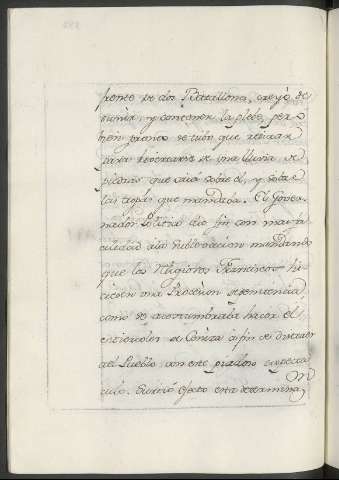 frente de dos Batallones, creyó de
tener, y contener la plebe, pero
bien pronto se tubo que retirar
para livertarse de una lluvia de
piedras que caia sobre él, y sobre
las tropas que mandaba. El Gover-
nador Politico dio fin con mas fa-
cilidad ala sublevacion mandando
que los Religiosos Franciscos hi-
ciesen una Procesion de penitencia,
como se acostumbraba hacer el
miercoles de Ceniza á fin de distraer
al Pueblo con este piadoso especta-
culo. Surtió efecto esta determina-